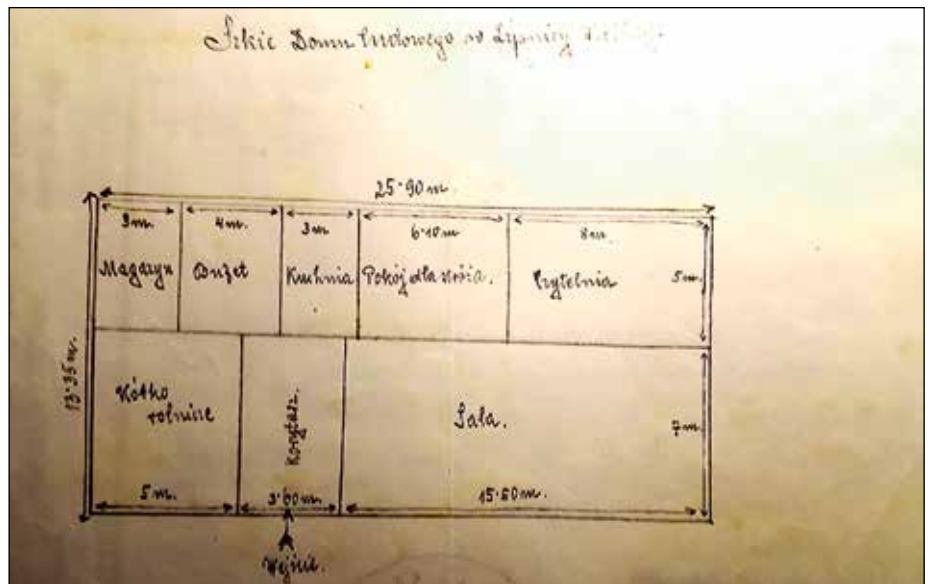 Szkic Domu ludowego w Lipnicy
25·90 m.
3 m.
4 m.
3 m
6·10 m
8 m.
Magazyn
Bufet
Kuchnia
Pokój dla stróża.
Czytelnia
5 m.
13·35 m.
Kółko
rolnicze
Korytarz.
Sala.
7 m.
5 m.
3·60 m.
15·50 m.
Wejście.